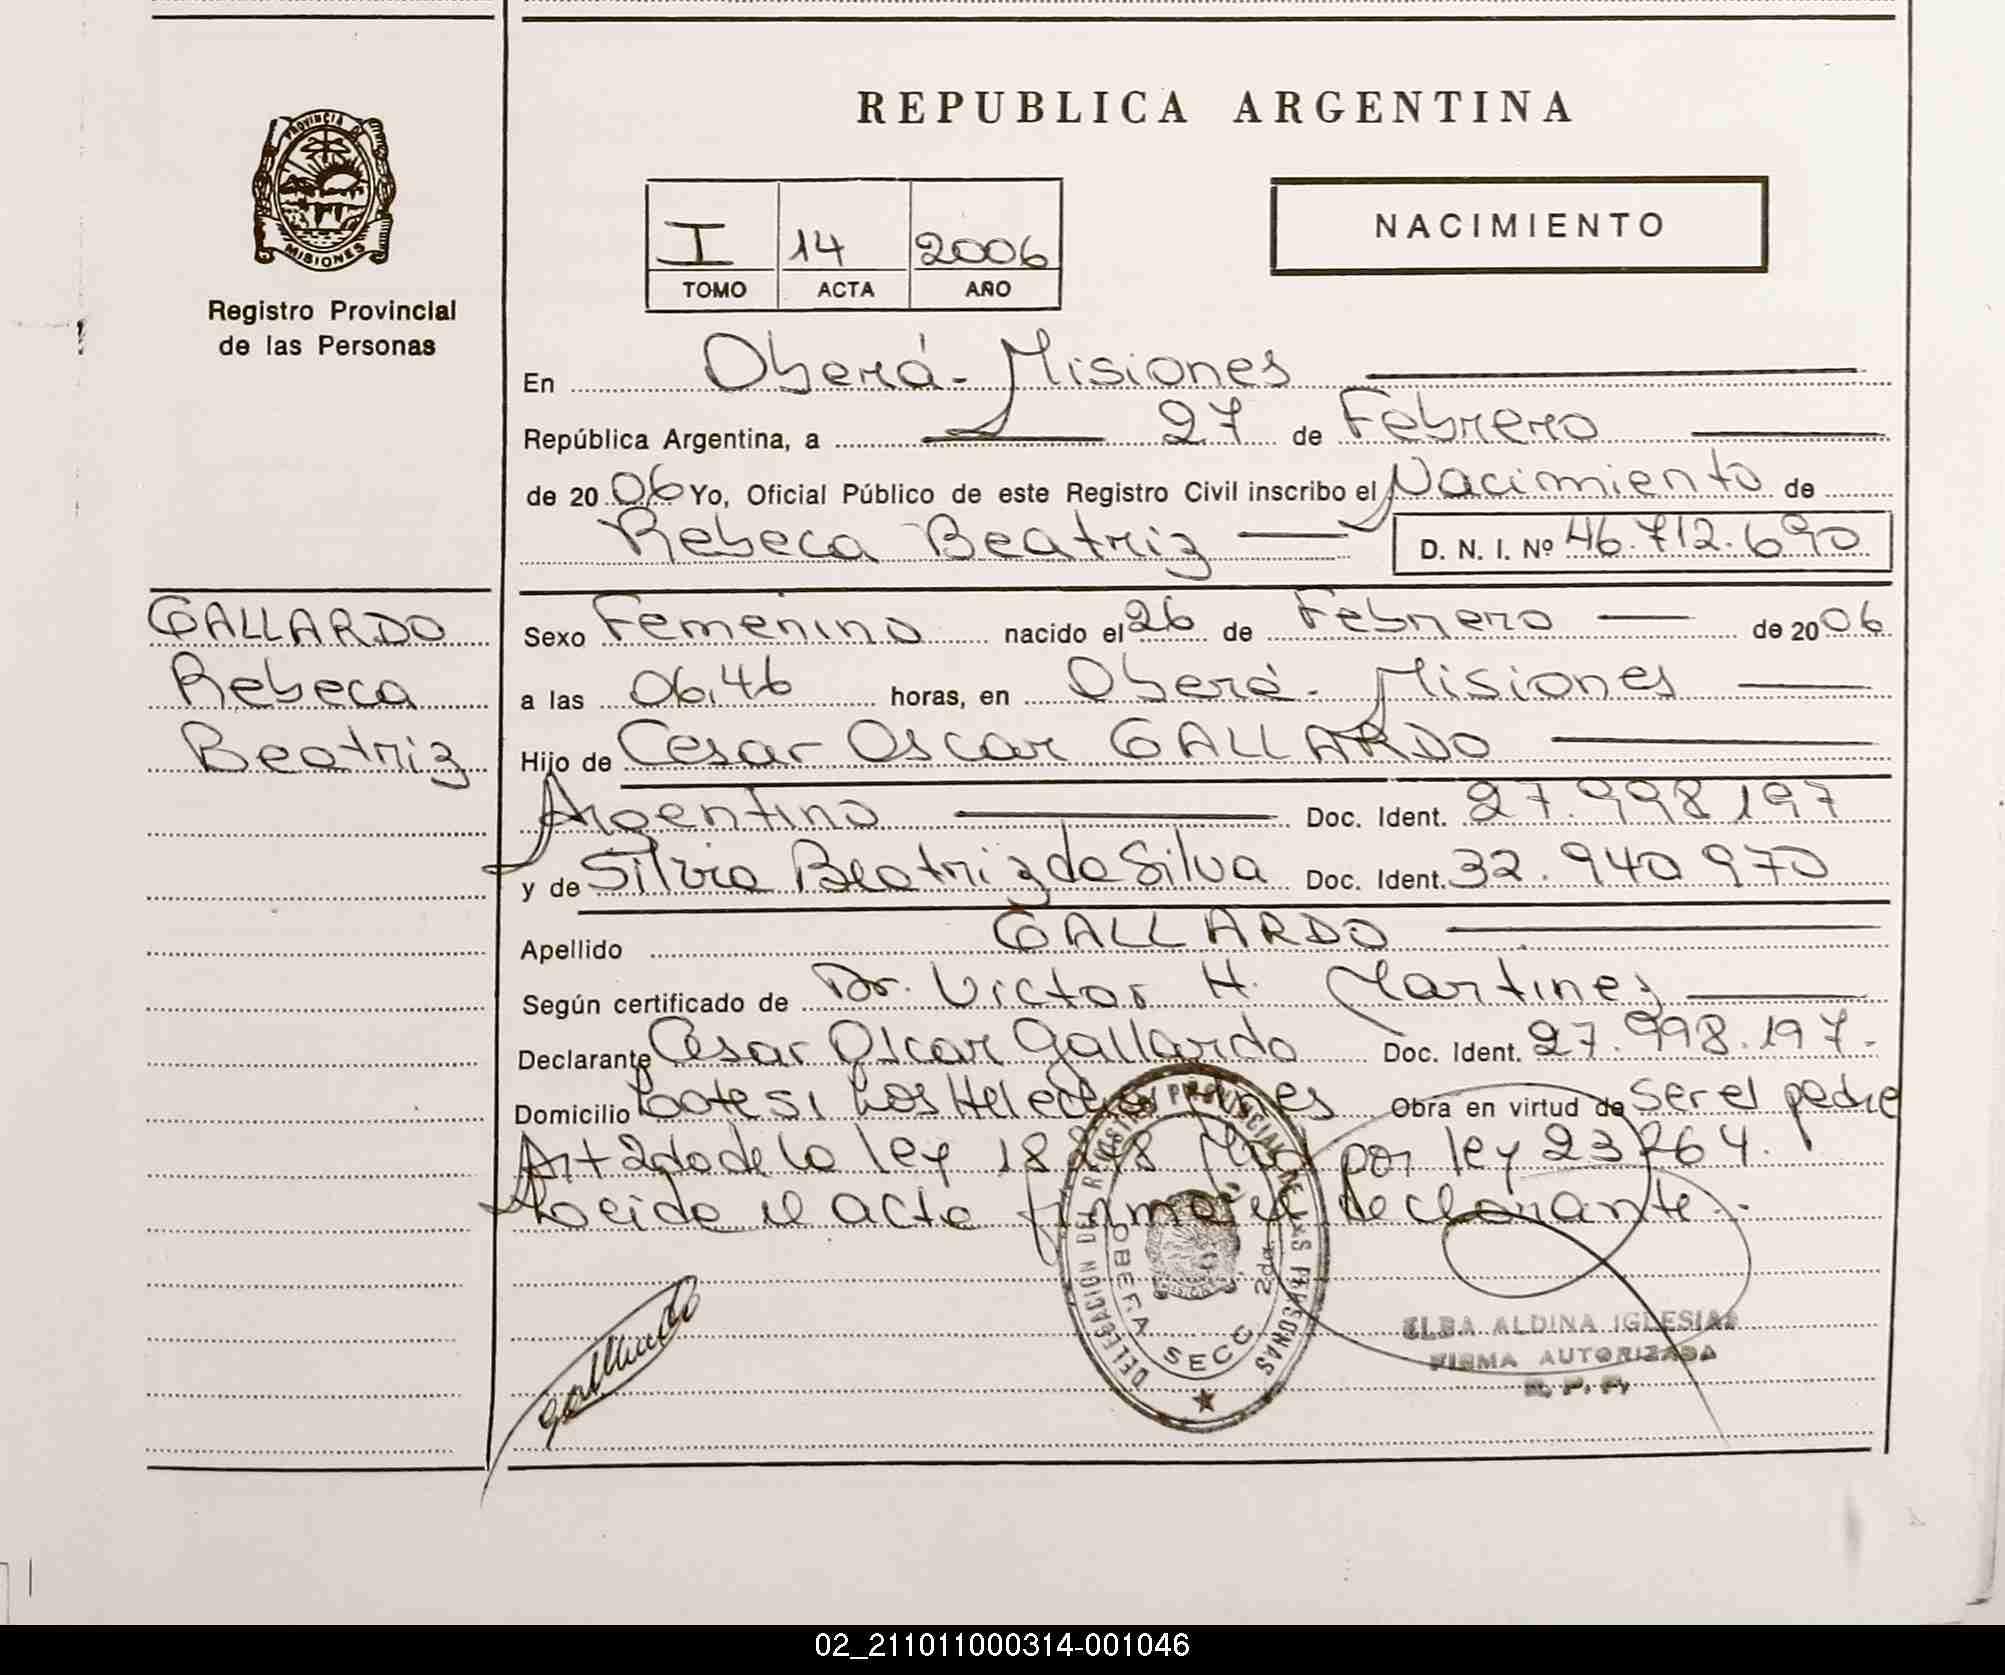 REPUBLICA ARGENTINA
PROVINCIA DE
MISIONES
Registro Provincial
de las Personas
I 14 2006
TOMO ACTA AÑO
NACIMIENTO
En Oberá - Misiones
República Argentina, a 27 de Febrero
de 2006 Yo, Oficial Público de este Registro Civil inscribo el Nacimiento de
Rebeca Beatriz D. N. I. Nº 46.712.690
GALLARDO
Rebeca
Beatriz
Sexo Femenino nacido el 26 de Febrero de 2006
a las 06,46 horas, en Oberá - Misiones
Hijo de Cesar Oscar GALLARDO
Argentino Doc. Ident. 27.998.197
y de Silvia Beatriz da Silva Doc. Ident. 32.940970
Apellido GALLARDO
Según certificado de Dr. Victor H. Martinez
Declarante Cesar Oscar Gallardo Doc. Ident. 27.998.197.
Domicilio Lote 51 Los Obra en virtud de ser el padre
Art 2do de la ley 18 248 Mod por ley 23264.
Leida el acta firma el declarante.
Gallardo
DELEGACION DE REGISTRO PROVINCIAL DE LAS PERSONAS
OBERA SECC. 2da.
ELBA ALDINA IGLESIAS
FIRMA AUTORIZADA
R. P. P.
02_211011000314-001046